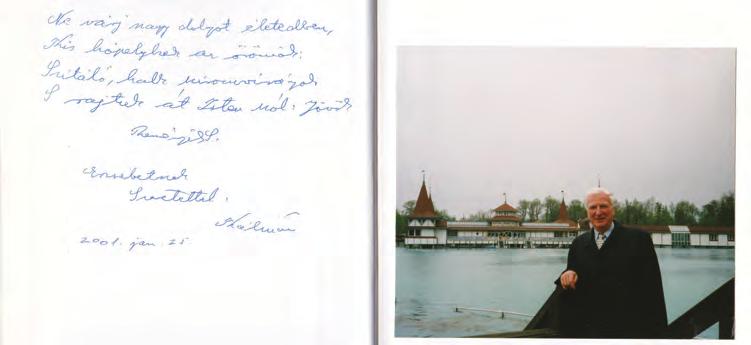 Ne várj nagy dolgot életedben,
Kis hópelyhek az örömök:
Szitáló, halk
S rajtuk át Isten szól: Jövök
Reményik S.
Erzsébetnek
Szeretettel:
Kálmán
2001. jan. 25.